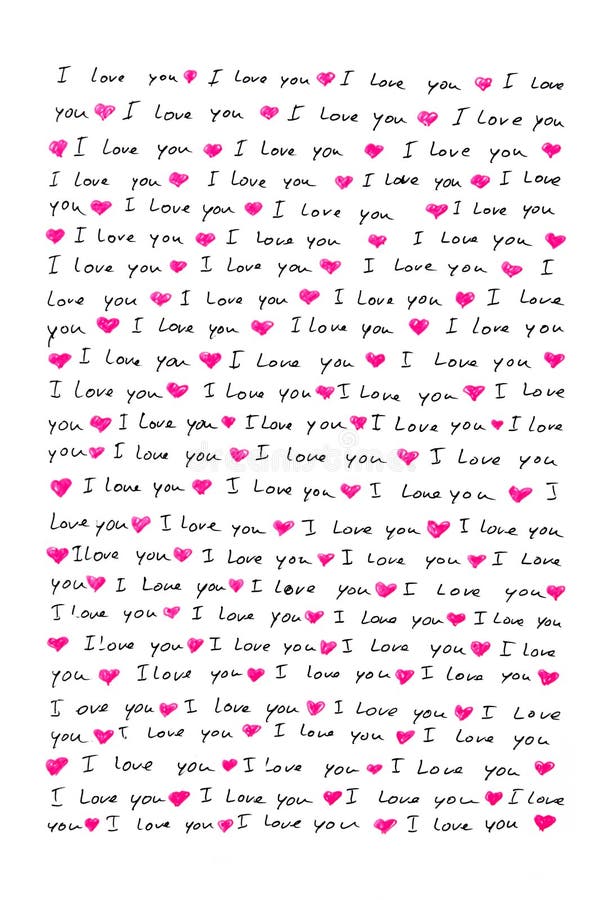 I love you ♥ I love you ♥ I love you ♥ I love
you ♥ I love you ♥ I love you ♥ I love you
♥ I love you ♥ I love you ♥ I love you ♥
I love you ♥ I love you ♥ I love you ♥ I love
you ♥ I love you ♥ I love you ♥ I love you
♥ I love you ♥ I love you ♥ I love you ♥
I love you ♥ I love you ♥ I love you ♥ I
love you ♥ I love you ♥ I love you ♥ I love
you ♥ I love you ♥ I love you ♥ I love you
♥ I love you ♥ I love you ♥ I love you ♥
I love you ♥ I love you ♥ I love you ♥ I love
you ♥ I love you ♥ I love you ♥ I love you ♥ I love
you ♥ I love you ♥ I love you ♥ I love you
♥ I love you ♥ I love you ♥ I love you ♥ I
love you ♥ I love you ♥ I love you ♥ I love you
♥ I love you ♥ I love you ♥ I love you ♥ I love
you ♥ I love you ♥ I love you ♥ I love you ♥
I love you ♥ I love you ♥ I love you ♥ I love you
♥ I love you ♥ I love you ♥ I love you ♥ I love
you ♥ I love you ♥ I love you ♥ I love you ♥
I ove you ♥ I love you ♥ I love you ♥ I love
you ♥ I love you ♥ I love you ♥ I love you
♥ I love you ♥ I love you ♥ I love you ♥
I love you ♥ I love you ♥ I love you ♥ I love
you ♥ I love you ♥ I love you ♥ I love you ♥
dreamstime